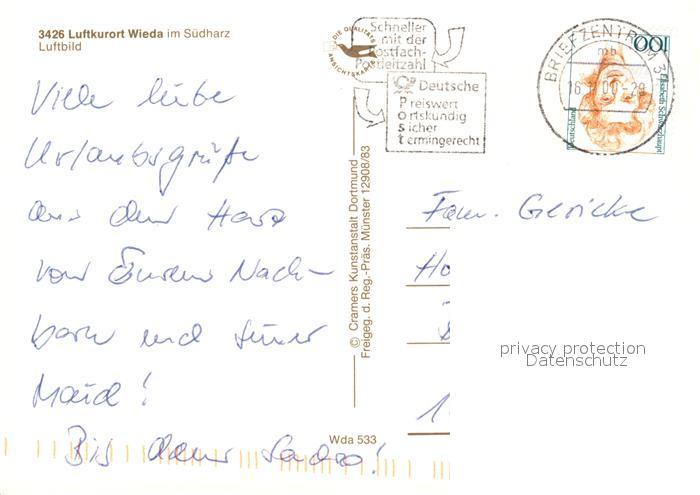 3426 Luftkurort Wieda im Südharz
Luftbild
DIE QUALITÄTS
ANSICHTSKARTE
Schneller
mit der
Postfach-
Postleitzahl
Deutsche
Preiswert
ortskundig
sicher
termingerecht
BRIEFZENTRUM 3
mb
100
Elisabeth Schwarzhaupt
Deutschland
Viele liebe
Urlaubsgrüße
aus dem Harz
von Euren Nach-
barn und
Bis dann
© Cramers Kunstanstalt Dortmund
Freigeg. d. Reg.-Präs. Münster 12908/83
Wda 533
Fam. Gericke
Ho
privacy protection
Datenschutz